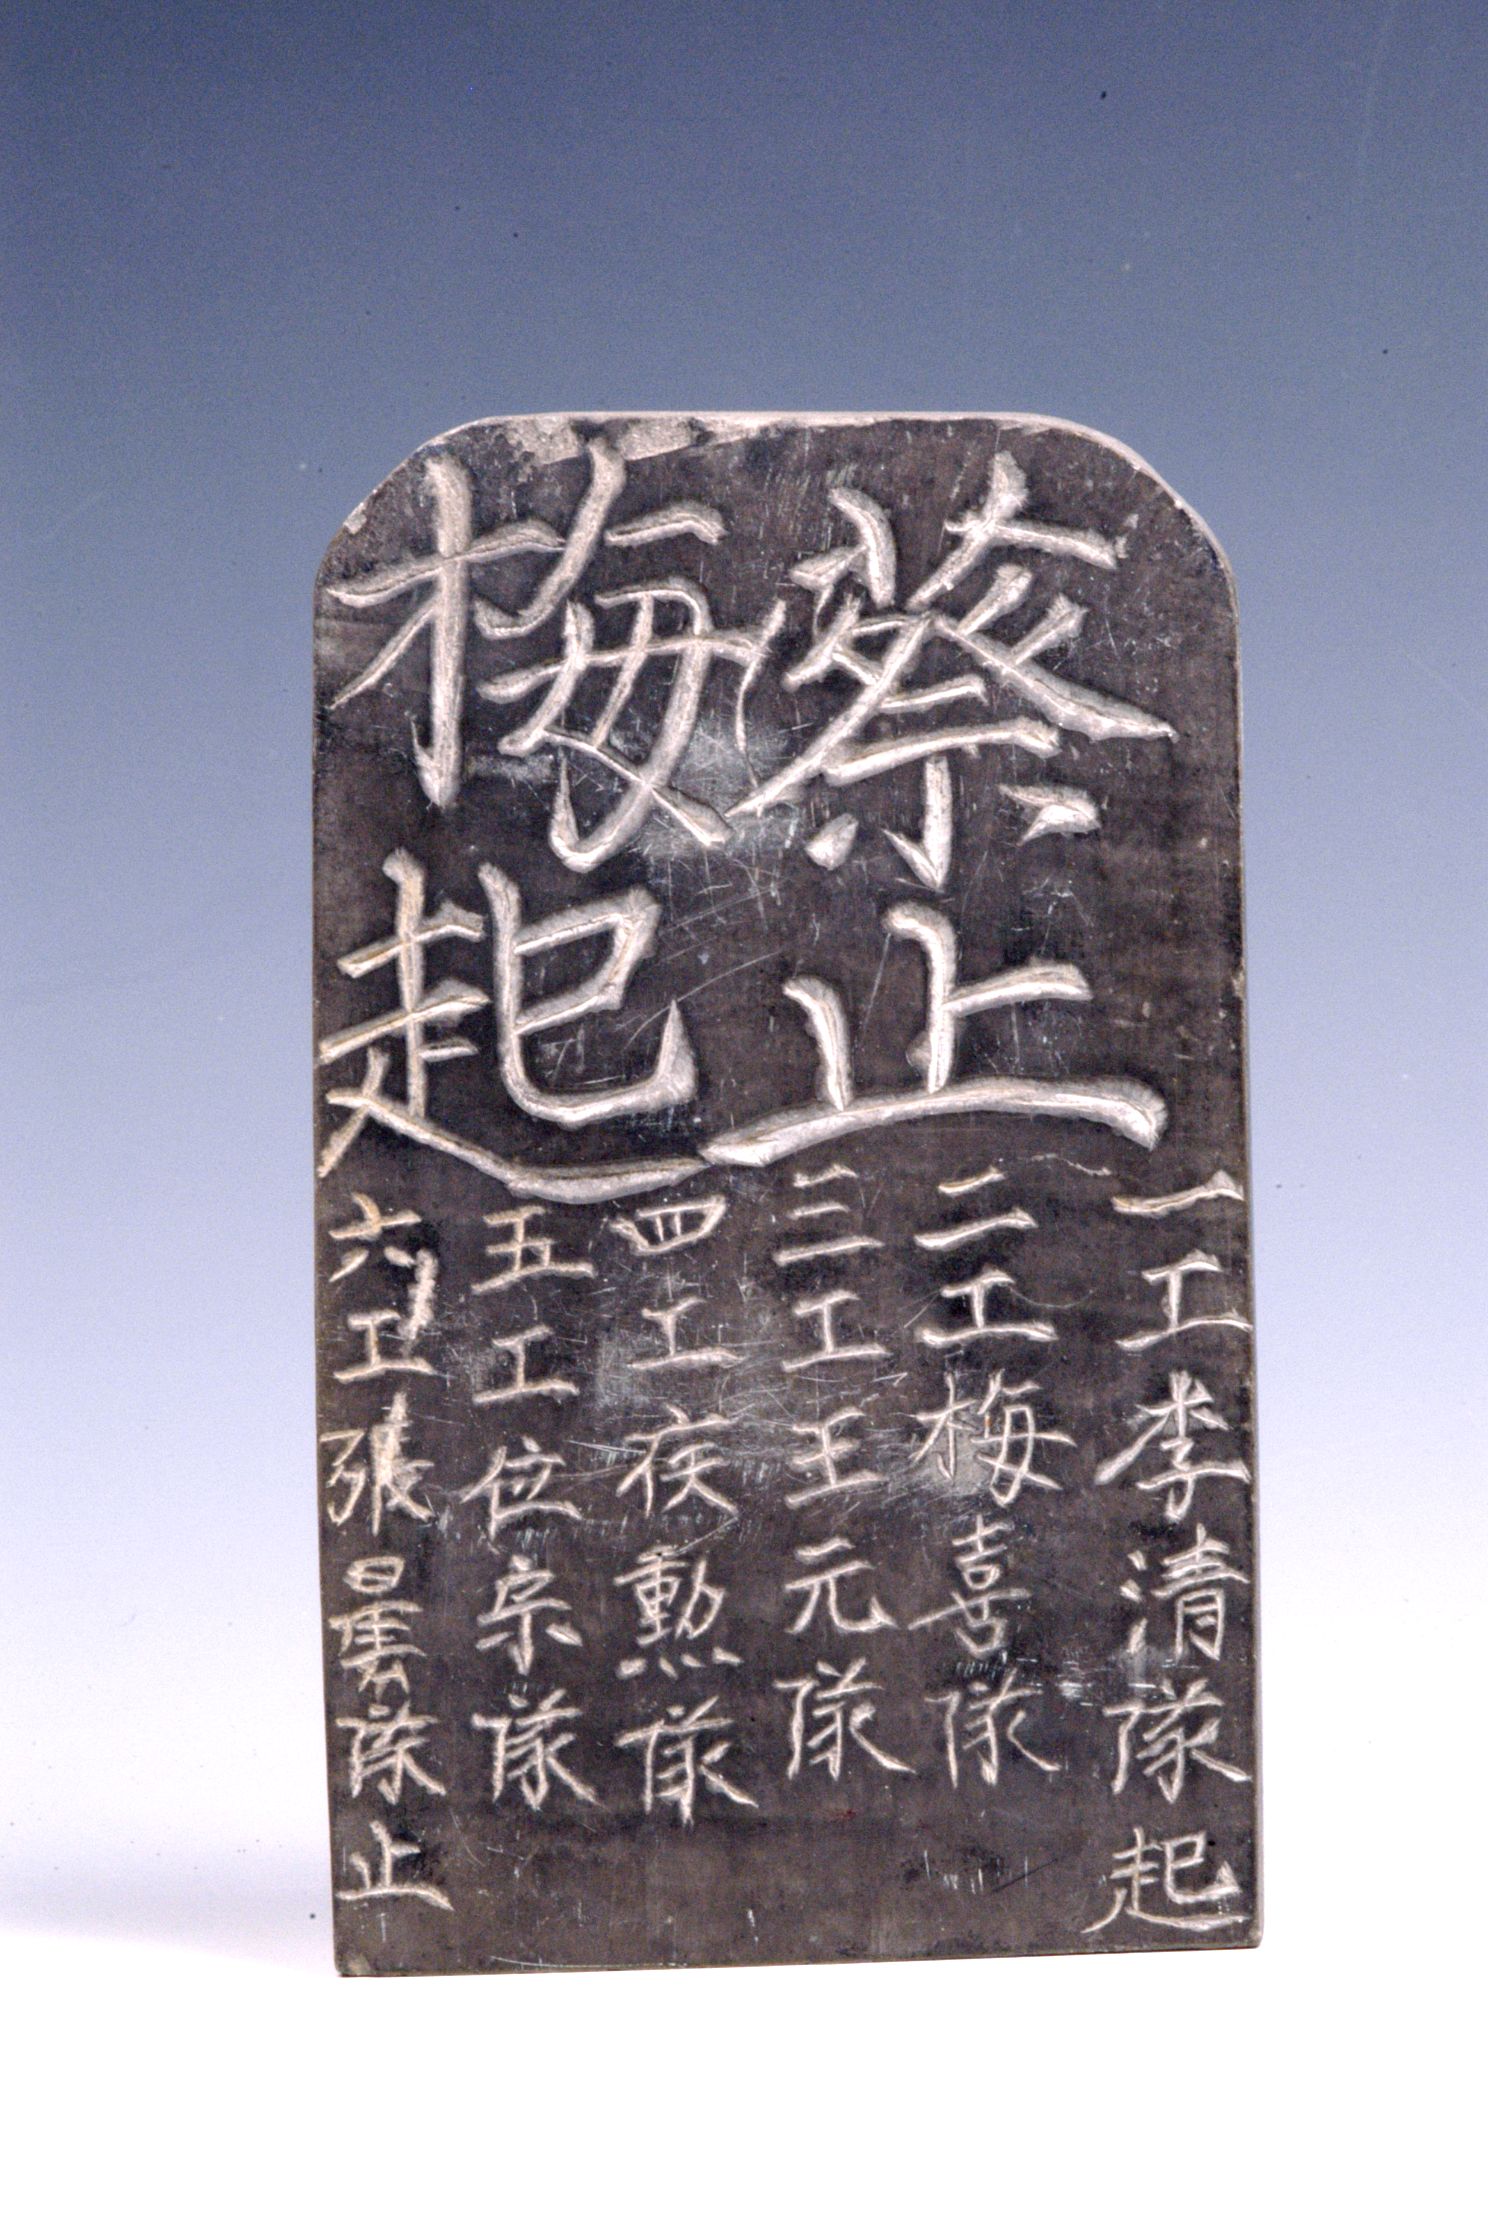 蔡止
梅起
一工李清隊起
二工梅喜隊
三工王元隊
四工侯勲隊
五工宗隊
六工張隊止